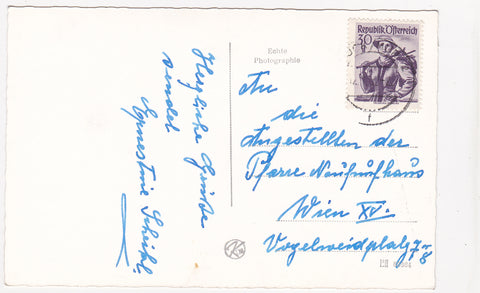 Herzliche Grüße
sendet
Ernestine
Echte
Photographie
Republik Österreich
30
An
die
Angestellten der
Pfarre Neufünfhaus
Wien XV.
Vogelweidplatz 7-8